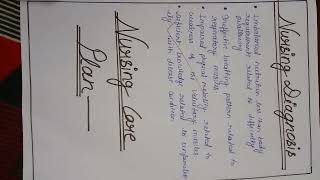 Nursing Diagnosis
• Imbalanced nutrition less than body
requirement related to difficulty
swallowing
• Ineffective breathing pattern related to
respiratory muscles
• Impaired physical mobility related to
weakness of the voluntary muscles
• deficient knowledge related to unfamiliar
with disease condition
Nursing Care
Plan